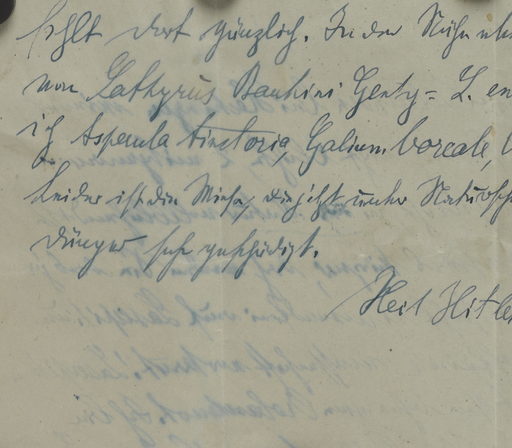 fehlt dort gänzlich. In der Nähe
von Lathyrus Bauhini Genty = L. en
ich Asperula tinctoria, Galium boreale,
Leider ist die Wiese, die jetzt unter Natursch
dünger sehr geschädigt.
Heil Hitler